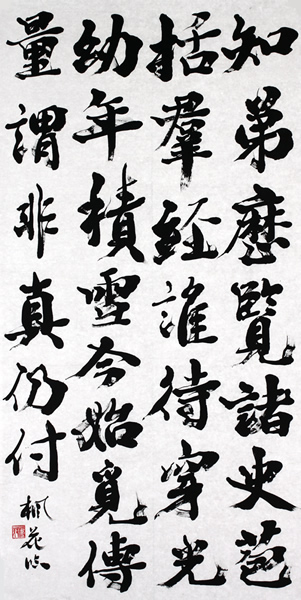 知第歷覽諸史苞
括羣經誰待穿光
幼年積雪今始覓傳
量謂非真仍付
楓花临